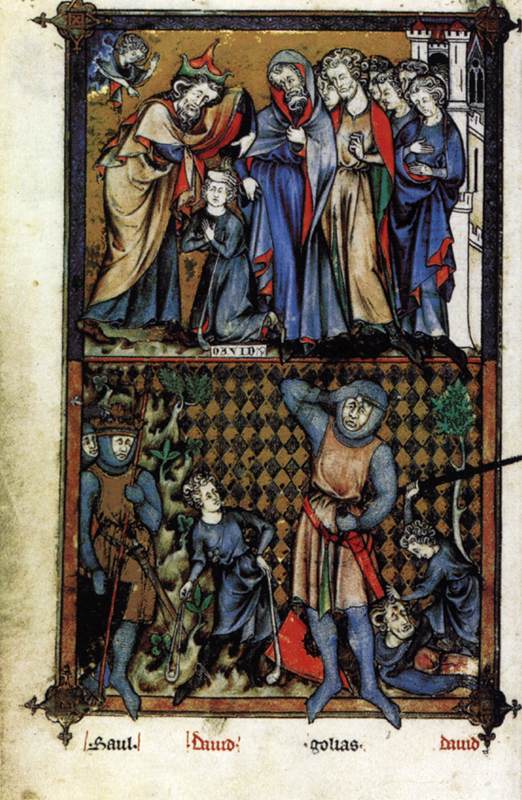 DAVID
.Saul. Dauid: .golias. dauid